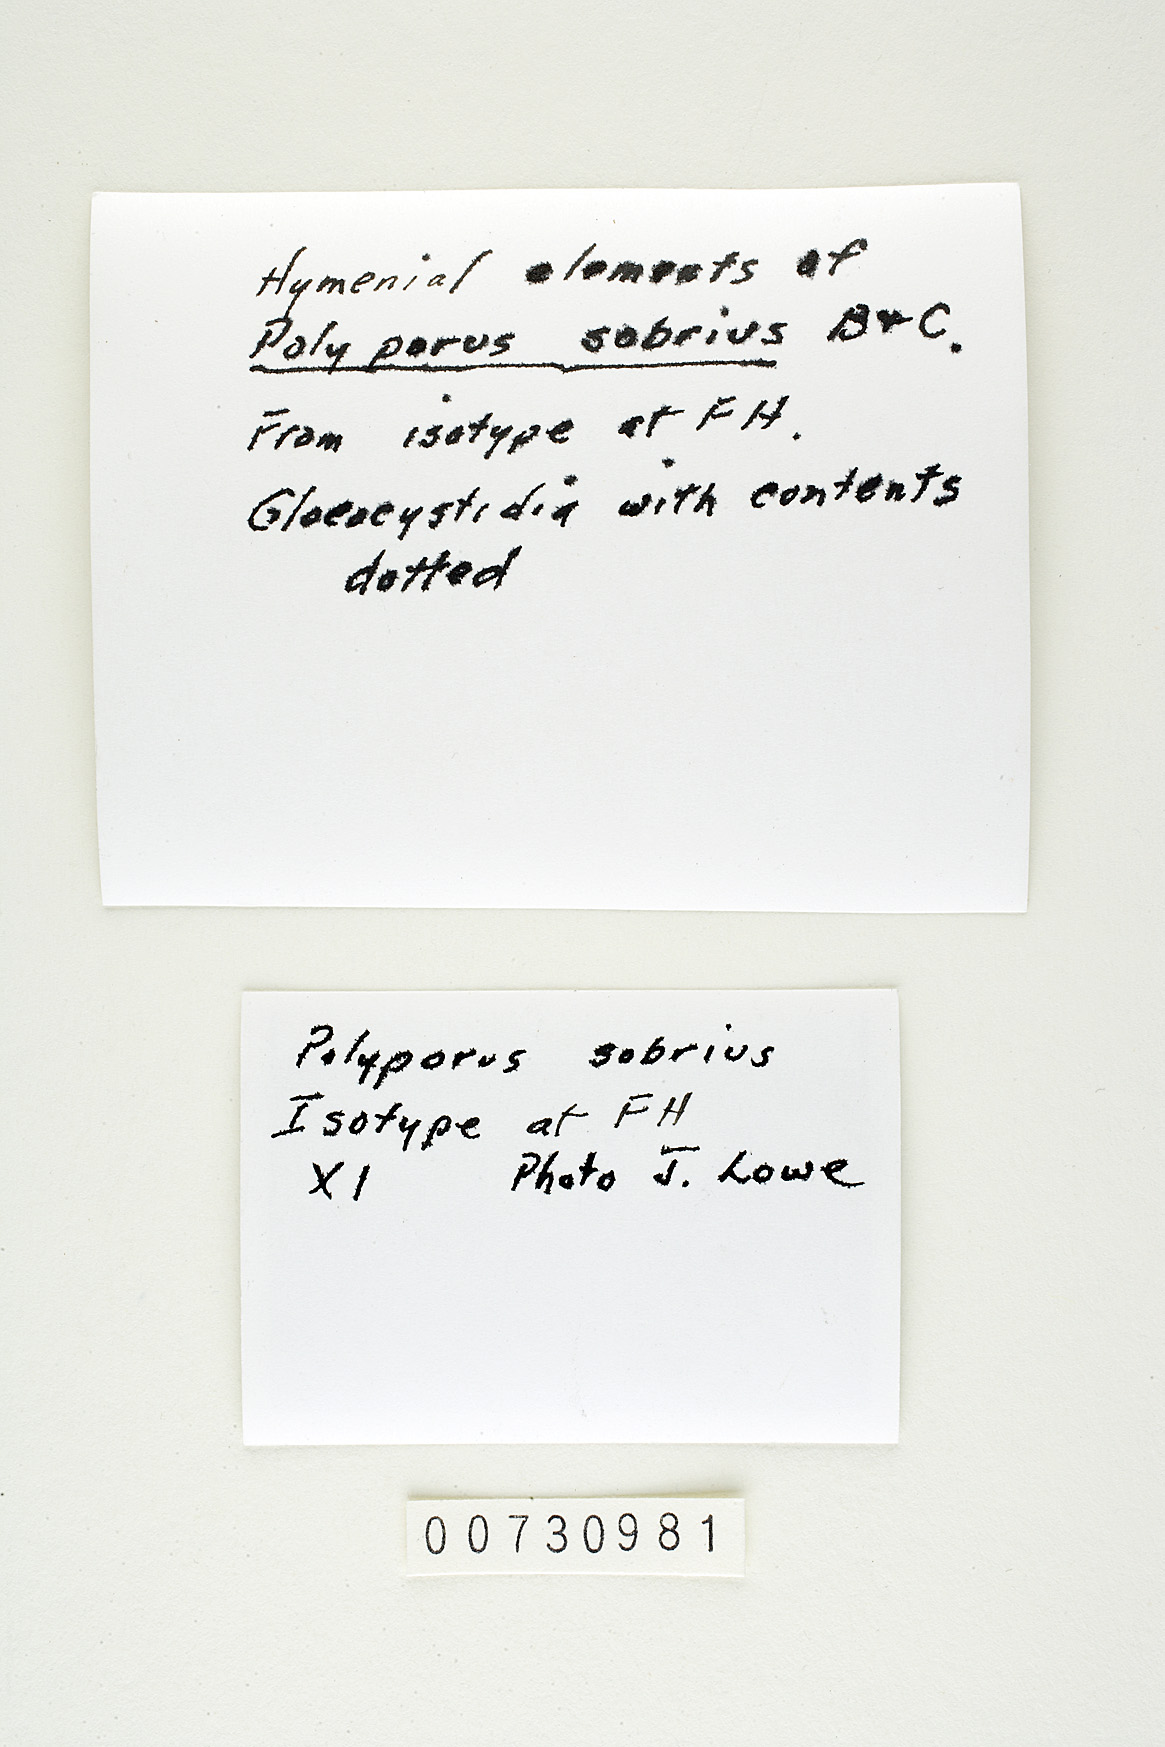 Hymenial elements of
Polyporus sobrius B+C.
From isotype at FH.
Gloeocystidia with contents
dotted
Polyporus sobrius
Isotype at FH
X1 Photo J. Lowe
00730981